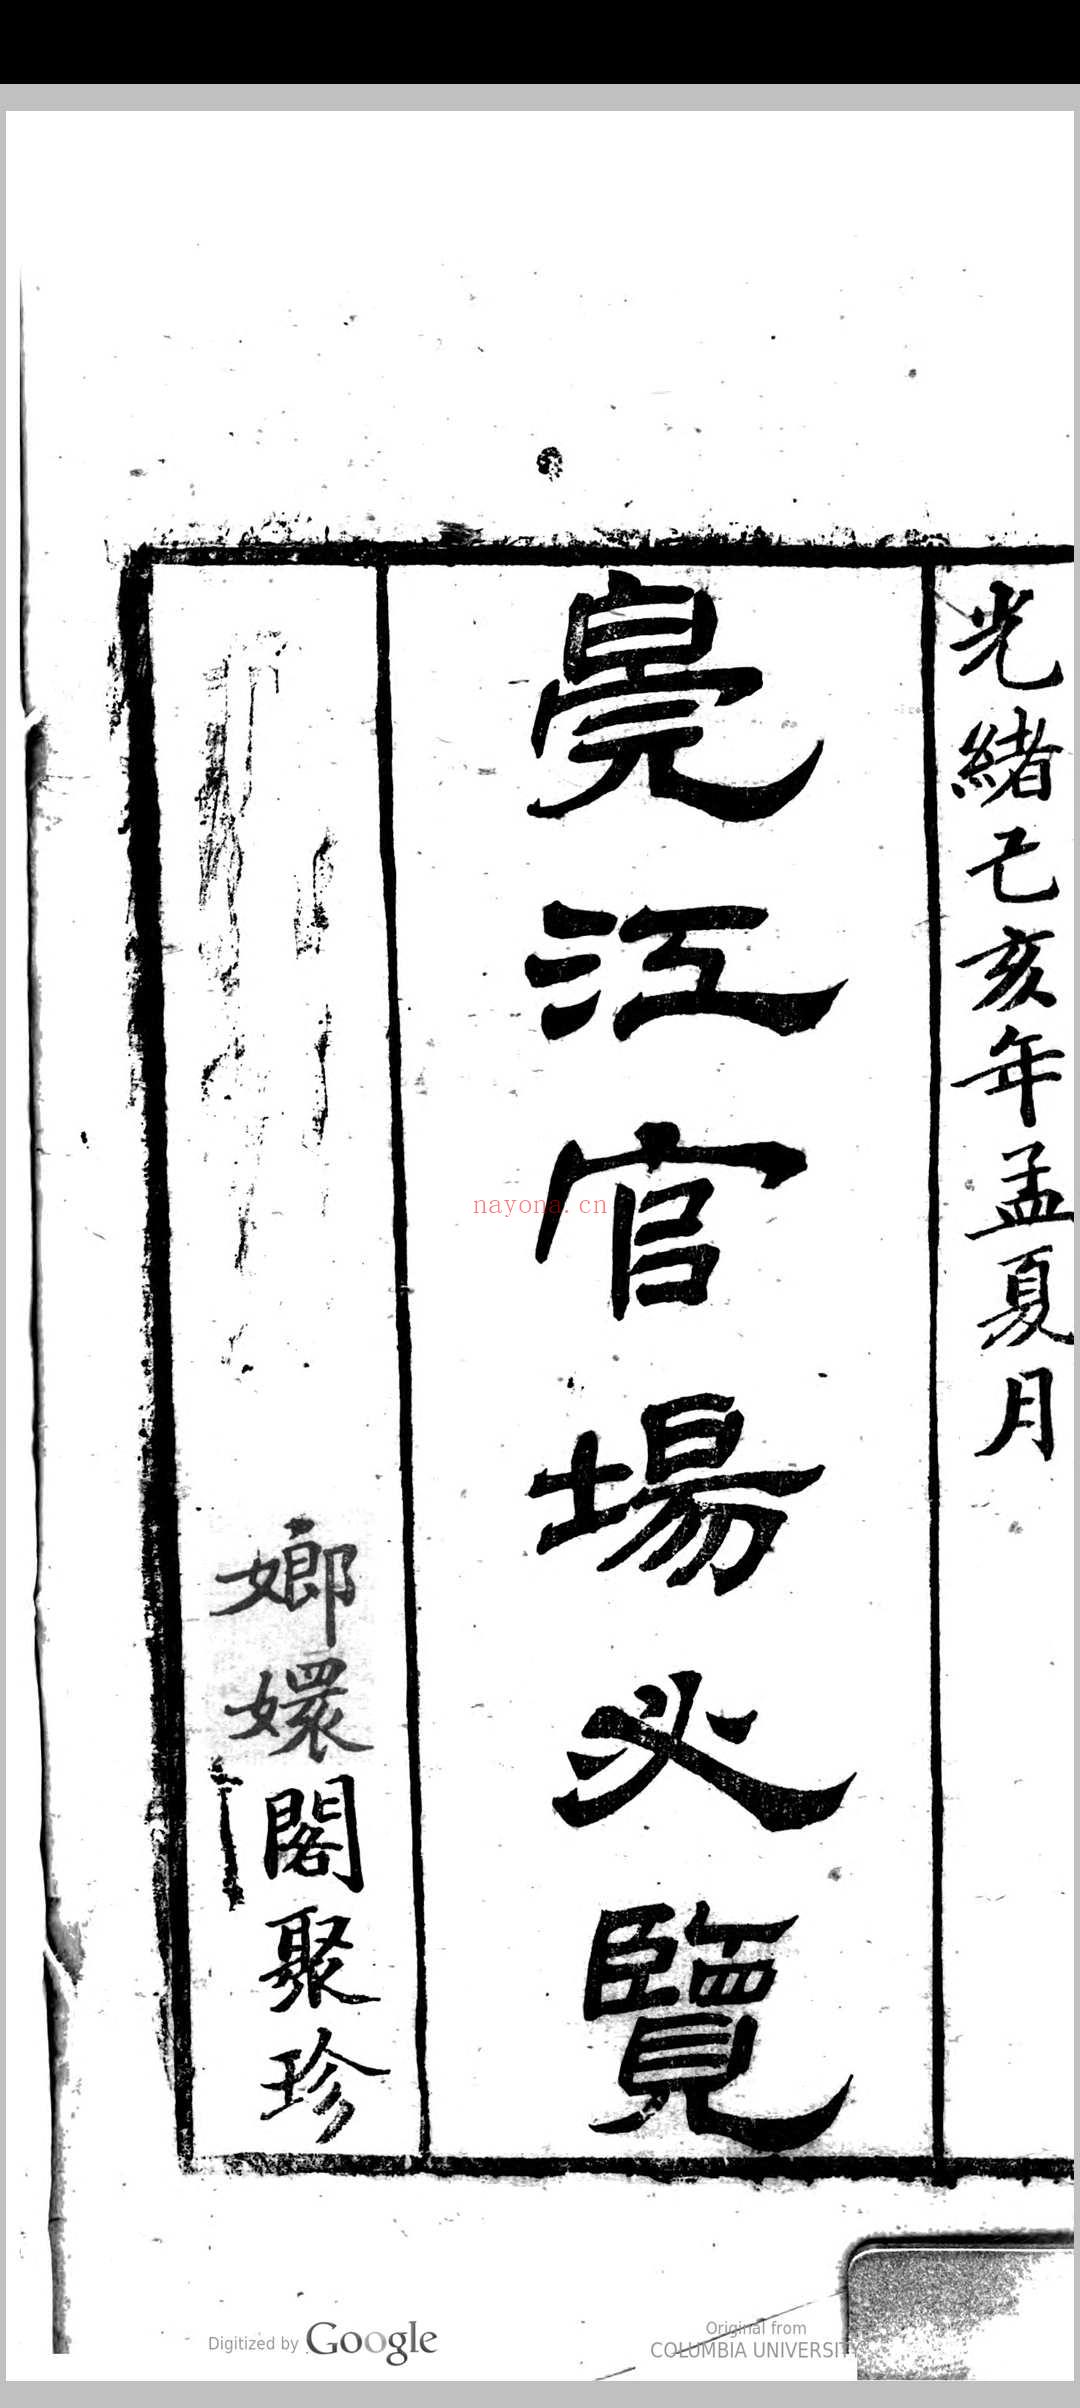 光緒己亥年孟夏月
皖江官場必覽
嫏嬛閣聚珍
nayona.cn
Digitized by Google
Original from
COLUMBIA UNIVERSITY